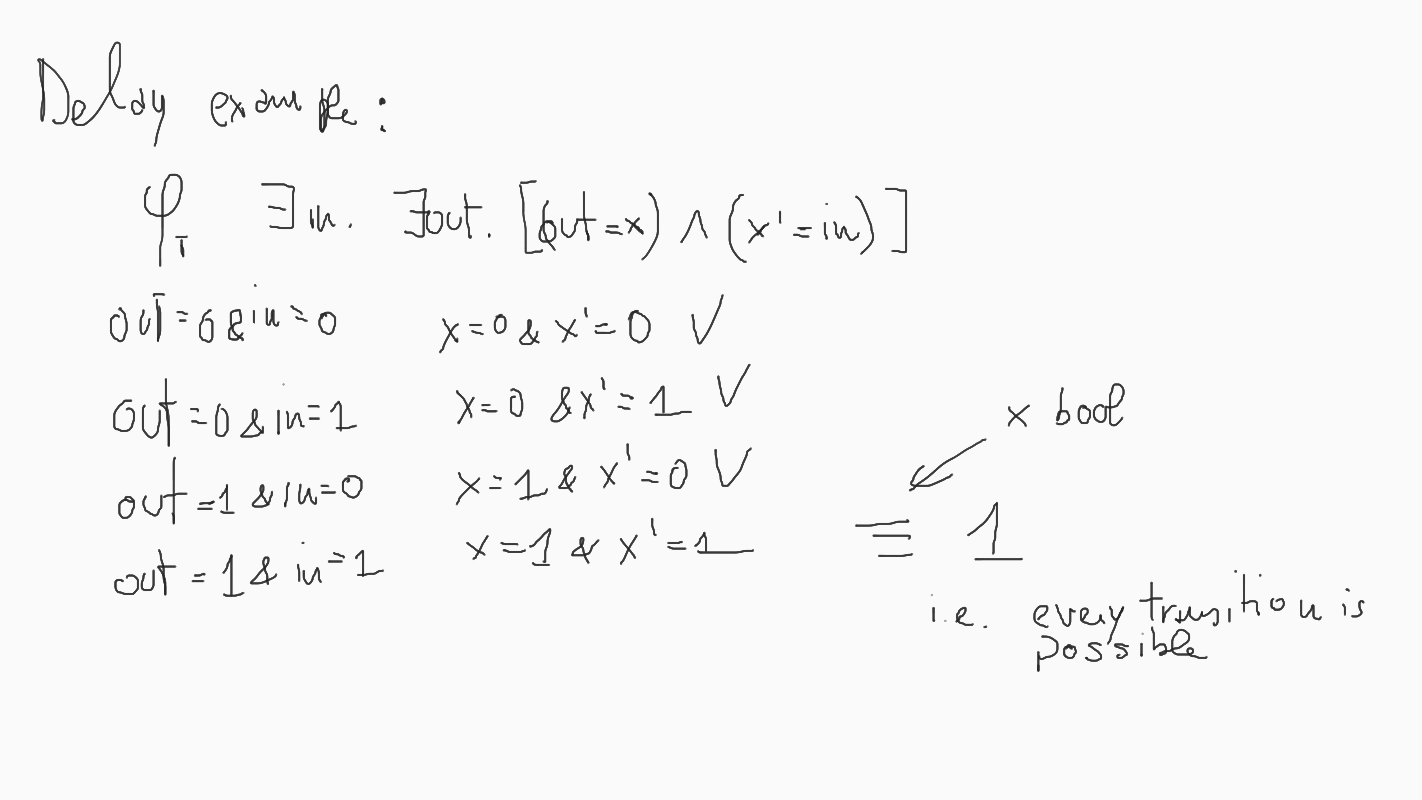 Delay example:
φ_T ∃ in. ∃out. [(out=x) ∧ (x'=in)]
out=0 & in=0 x=0 & x'=0 ∨
out=0 & in=1 x=0 & x'=1 ∨
x bool
out=1 & in=0 x=1 & x'=0 ∨
out=1 & in=1 x=1 & x'=1 ≡ 1
i.e. every transition is
possible